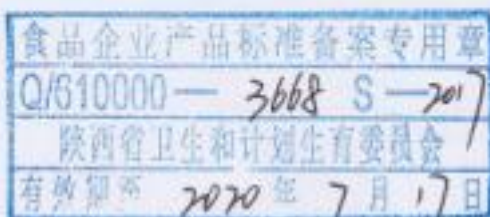 食品企业产品标准备案专用章
Q/610000— 3668 S —2017
陕西省卫生和计划生育委员会
有效期至 2020 年 7 月 17 日